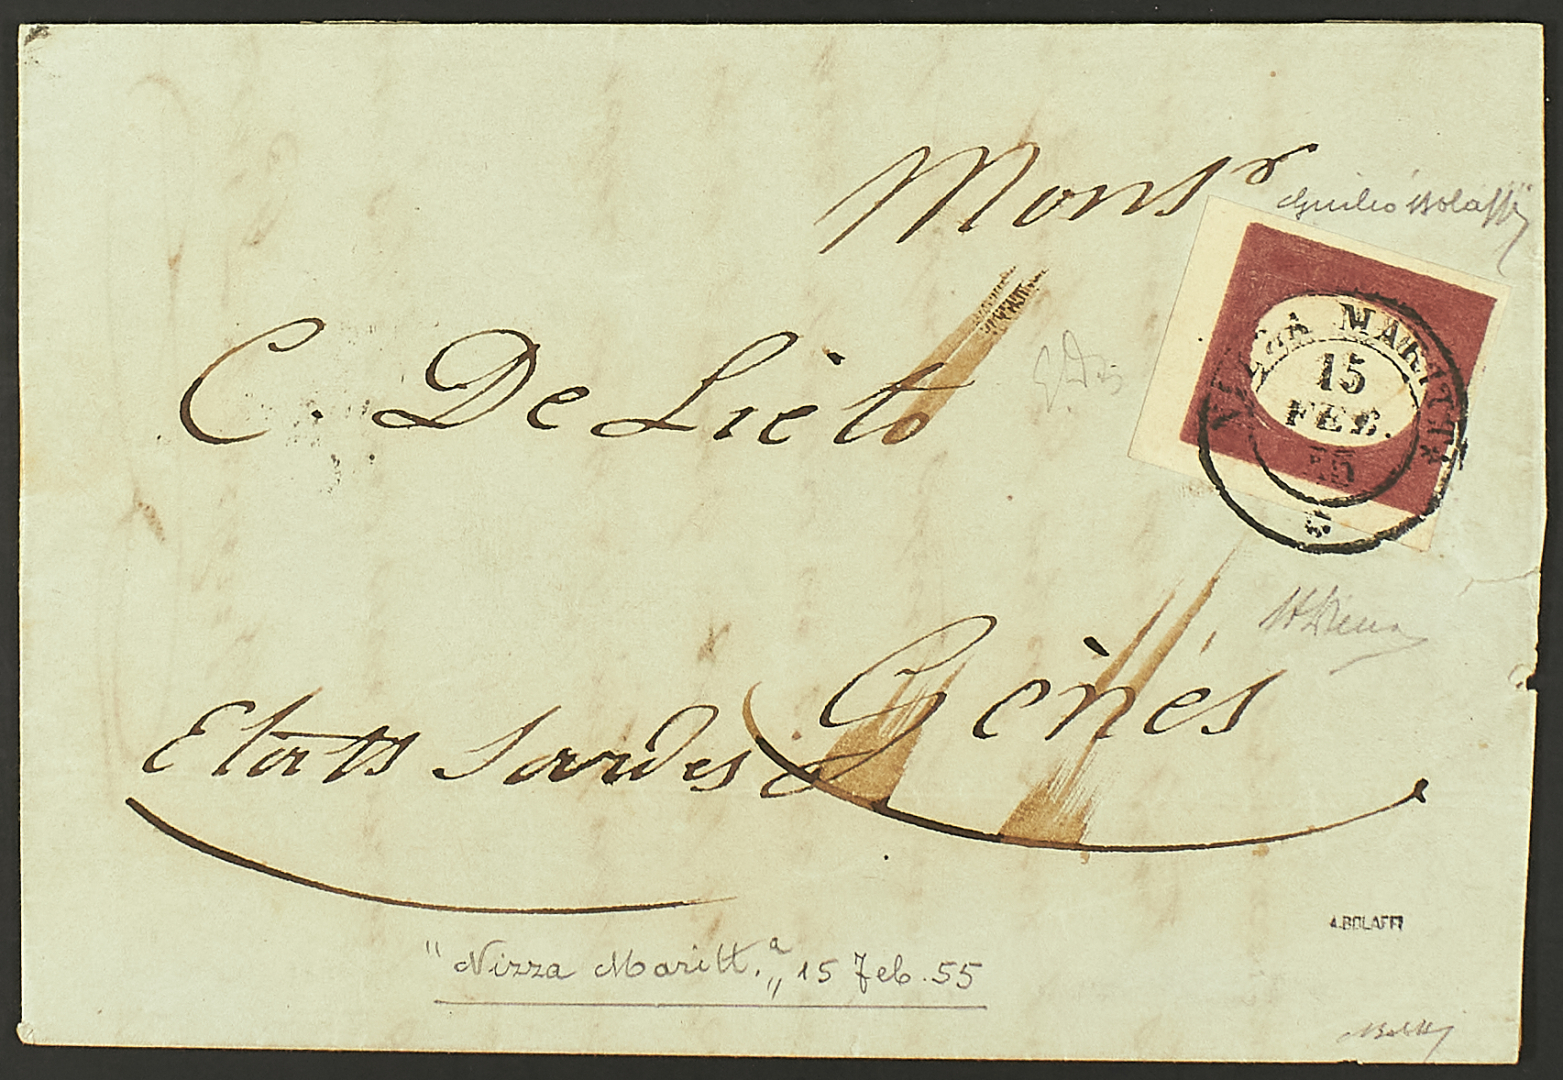 Monsʳ
Giulio Bolaffi
C. De Lieto
NIZZA MARITTᴬ
15
FEB.
55
Etats Sardes Gènes
"Nizza Maritt.ᵃ„ 15 Feb. 55
A. BOLAFFI